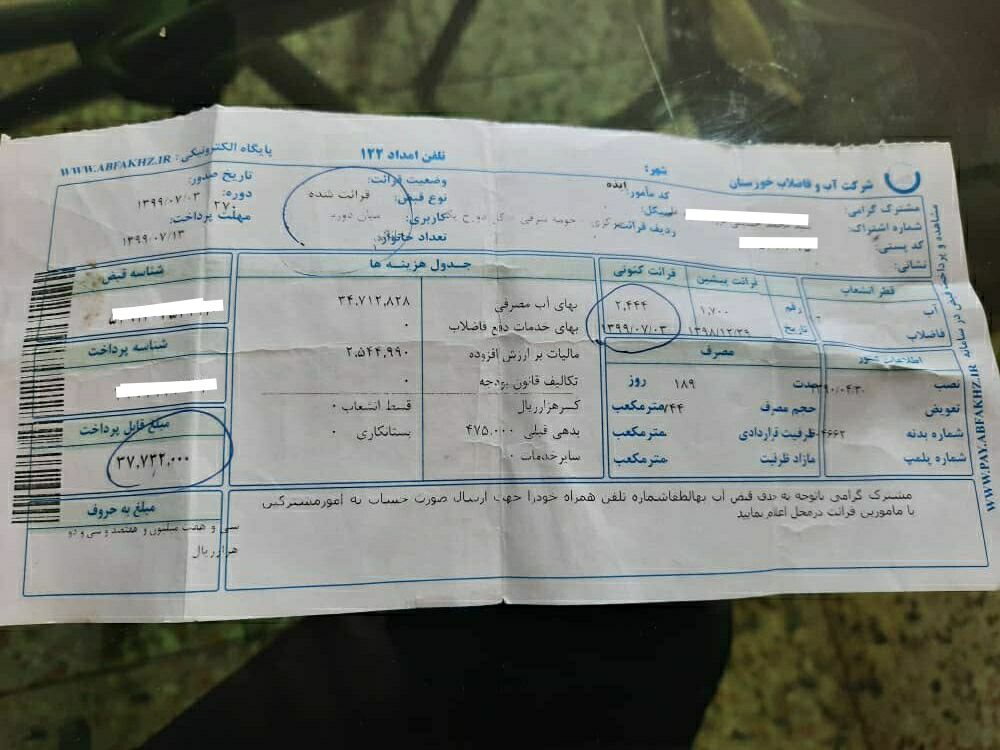 شرکت آب و فاضلاب خوزستان
شهر: ایذه
تلفن امداد ۱۲۲
پایگاه الکترونیکی: WWW.ABFAKHZ.IR
مشترک گرامی:
شماره اشتراک:
کد پستی:
نشانی:
کد مامور:
سیکل:
ردیف قرائت:
وضعیت قرائت: قرائت شده
نوع قبض: میان دوره
کاربری:
تعداد خانوار:
تاریخ صدور: ۱۳۹۹/۰۷/۰۳
دوره: ۲۷۰
مهلت پرداخت: ۱۳۹۹/۰۷/۱۳
قطر انشعاب
آب
فاضلاب
قرائت پیشین
قرائت کنونی
رقم ۱,۷۰۰ ۲,۴۴۴
تاریخ ۱۳۹۸/۱۲/۲۹ ۱۳۹۹/۰۷/۰۳
اطلاعات کنتور
نصب
تعویض
شماره بدنه
شماره پلمپ
مصرف
مدت ۱۸۹ روز
حجم مصرف ۷۴۴ مترمکعب
ظرفیت قراردادی مترمکعب
مازاد ظرفیت مترمکعب
جدول هزینه ها
بهای آب مصرفی ۳۴,۷۱۲,۸۲۸
بهای خدمات دفع فاضلاب ۰
مالیات بر ارزش افزوده ۲,۵۴۴,۹۹۰
تکالیف قانون بودجه ۰
کسرهزارریال قسط انشعاب ۰
بدهی قبلی ۴۷۵,۰۰۰ بستانکاری ۰
سایرخدمات ۰
شناسه قبض
شناسه پرداخت
مبلغ قابل پرداخت
۳۷,۷۳۲,۰۰۰
مبلغ به حروف
سی و هفت میلیون و هفتصد و سی و دو
هزارریال
مشترک گرامی باتوجه به حذف قبض آب بهالطفاشماره تلفن همراه خودرا جهت ارسال صورت حساب به امورمشترکین
یا مامورین قرائت درمحل اعلام نمایید
مشاهده و پرداخت قبض در سامانه WWW.PAY.ABFAKHZ.IR